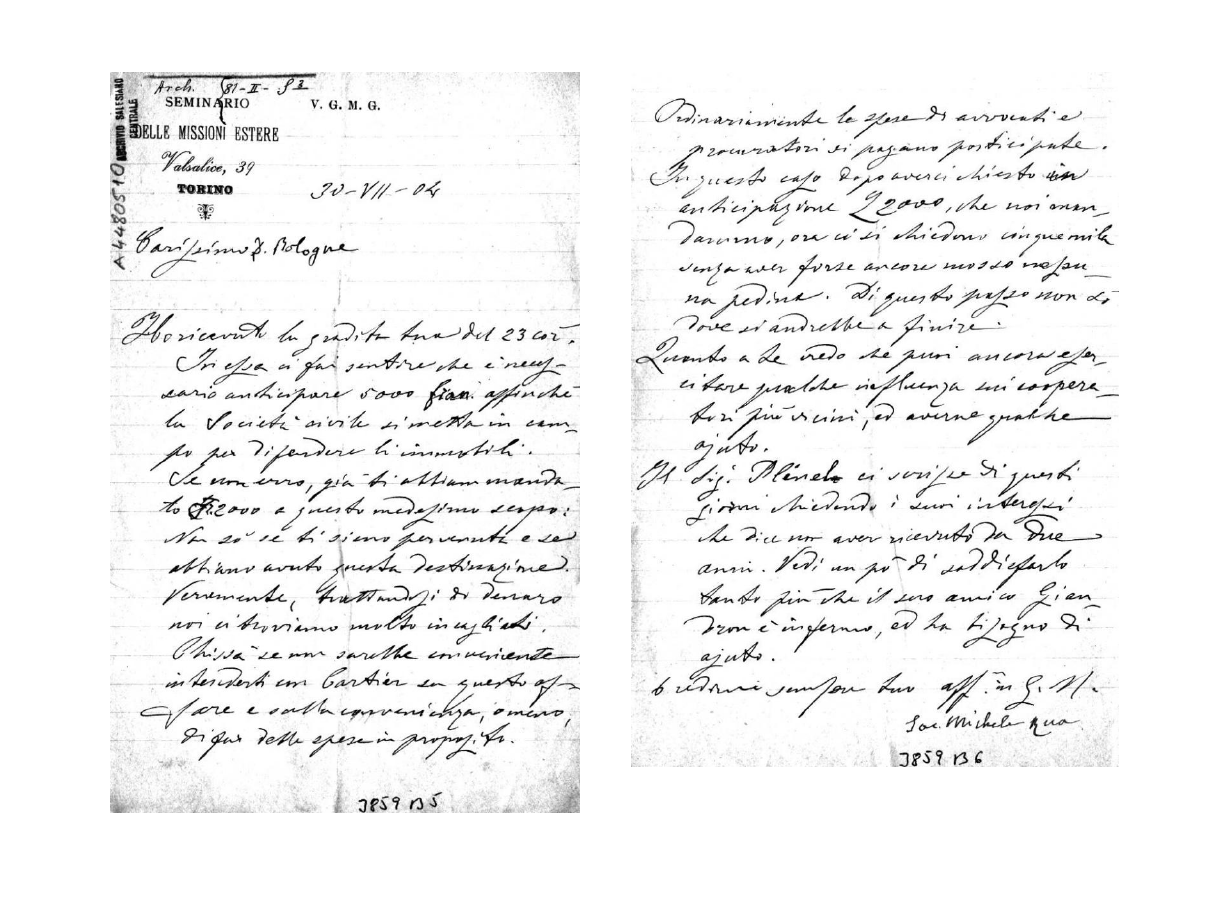 Arch. 81-II-
SEMINARIO V. G. M. G.
DELLE MISSIONI ESTERE
Valsalice, 39
TORINO
30-VII-04
ARCHIVIO SALESIANO
CENTRALE
A4480510
Carissimo D. Bologne
Ho ricevuto la gradita tua del 23 cor.
In essa ci fai sentire che è neces-
sario anticipare 5000 affinchè
la Società civile si metta in cam-
po per difendere li immobili.
Se non erro, già ti abbiam manda-
to 2000 a questo medesimo scopo:
Non so se ti siano pervenute e se
abbiano avuto questa destinazione.
Veramente, trattandosi di denaro
noi ci troviamo molto incagliati.
Chissà se non sarebbe conveniente
intenderti con Cartier su questo af-
fare e sulla convenienza, o meno,
di far delle spese in proposito.
J859 B5
Ordinariamente le spese di avvocati e
procuratori si pagano posticipate.
In questo caso dopo averci chiesto un
anticipazione L 2000, che noi man-
dammo, ora ci si chiedono cinquemila
senza aver forse ancora mosso nessu-
na pedina. Di questo passo non so
dove si andrebbe a finire.
Quanto a te credo che puoi ancora eser-
citare qualche influenza sui coopera-
tori più vicini, ed averne qualche
ajuto.
Il Sig. ci scrisse di questi
giorni chiedendo i suoi interessi
che dice non aver ricevuto da due
anni. Vedi un pò di soddisfarlo
tanto più che il suo amico Gian-
dron è infermo, ed ha bisogno di
ajuto.
Credimi sempre tuo aff. in G. M.
Sac. Michele Rua
J859 B6